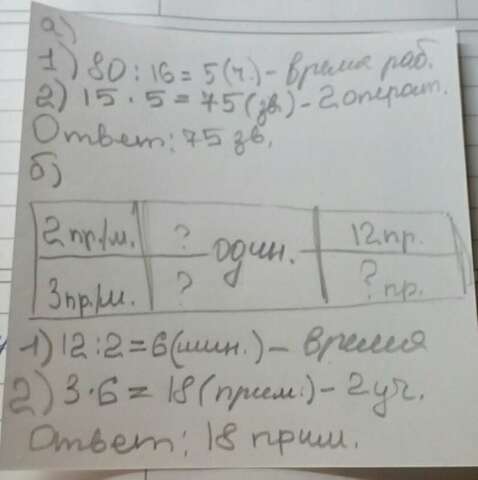 а)
1) 80 : 16 = 5 (ч.) - время раб.
2) 15 · 5 = 75 (зв.) - 2 операт.
Ответ: 75 зв.
б)
2 пр./м. ? один. 12 пр.
3 пр./м. ? ? пр.
1) 12 : 2 = 6 (мин.) - время
2) 3 · 6 = 18 (прим.) - 2 уч.
Ответ: 18 прим.